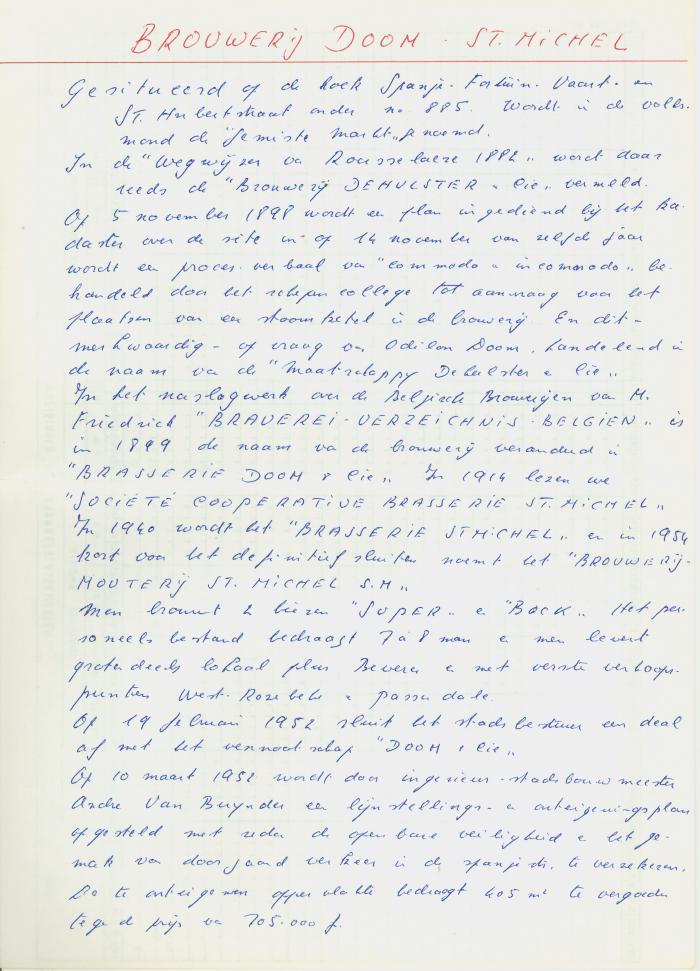 BROUWERIJ DOOM - ST. MICHEL
Gesitueerd op de hoek Spanje- Fortuin- Vaart- en
ST. Hubertstraat onder no 885. Wordt in de volks-
mond de "Semiste Macht" genoemd.
In de "Wegwijzer va Rousselaere 1882" wordt daar
reeds de "Brouwerij DEHULSTER & Cie" vermeld.
Op 5 november 1898 wordt een plan ingediend bij het ka-
daster over de site en op 14 november van zelfde jaar
wordt een proces-verbaal van "commodo & incommodo" be-
handeld door het schepencollege tot aanvraag voor het
plaatsen van een stoomketel in de brouwerij. En dit -
merkwaardig - op vraag van Odilon Doom, handelend in
de naam van de "Maatschappy Dehulster & Cie"
In het naslagwerk over de Belgische Brouwerijen van M.
Friedrich "BRAUEREI-VERZEICHNIS-BELGIEN" is
in 1899 de naam va de brouwerij veranderd in
"BRASSERIE DOOM & Cie" In 1914 lezen we
"SOCIÉTÉ COOPERATIVE BRASSERIE ST. MICHEL"
In 1940 wordt het "BRASSERIE ST MICHEL" en in 1954
kort voor het definitief sluiten noemt het "BROUWERIJ-
MOUTERIJ ST. MICHEL S.M"
Men brouwt 2 bieren "SUPER" & "BOCK" Het per-
soneelsbestand bedraagt 7 à 8 man en men levert
grotendeels lokaal plus Beveren & met verste verkoops-
punten West-Rozebeke & Passendale.
Op 19 februari 1952 sluit het stadsbestuur een deal
af met het vennootschap "DOOM & Cie"
Op 10 maart 1952 wordt door ingenieur-stadsbouwmeester
Andre Van Buynder een lijnstellings- & onteigeningsplan
opgesteld met reden de openbare veiligheid & het ge-
mak van doorgaand verkeer in de spanjestr. te verzekeren.
De te onteigenen oppervlakte bedraagt 405 m² te vergoeden
tegen de prijs va 705.000 f.